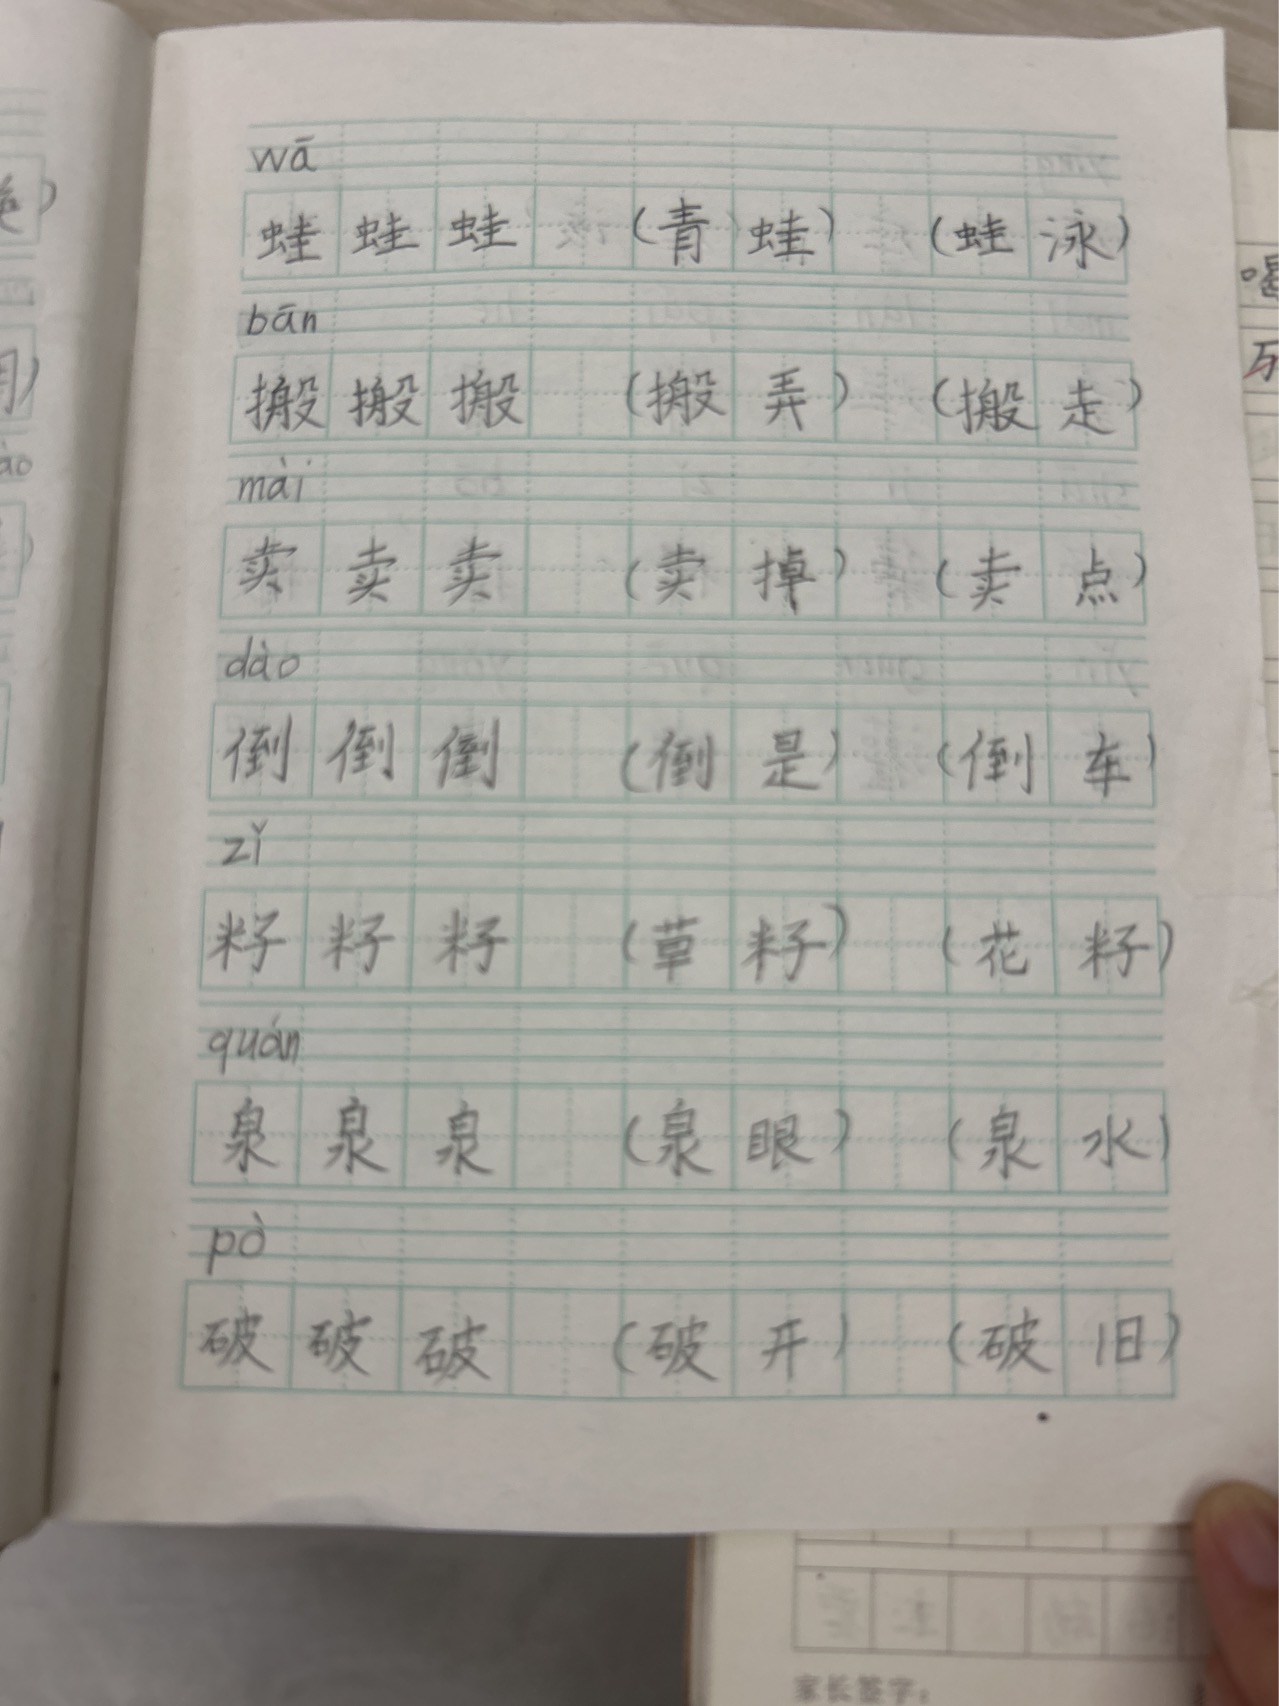 wā
蛙 蛙 蛙 (青 蛙) (蛙 泳)
bān
搬 搬 搬 (搬 弄) (搬 走)
mài
卖 卖 卖 (卖 掉) (卖 点)
dào
倒 倒 倒 (倒 是) (倒 车)
zǐ
籽 籽 籽 (草 籽) (花 籽)
quán
泉 泉 泉 (泉 眼) (泉 水)
pò
破 破 破 (破 开) (破 旧)
家长签字: